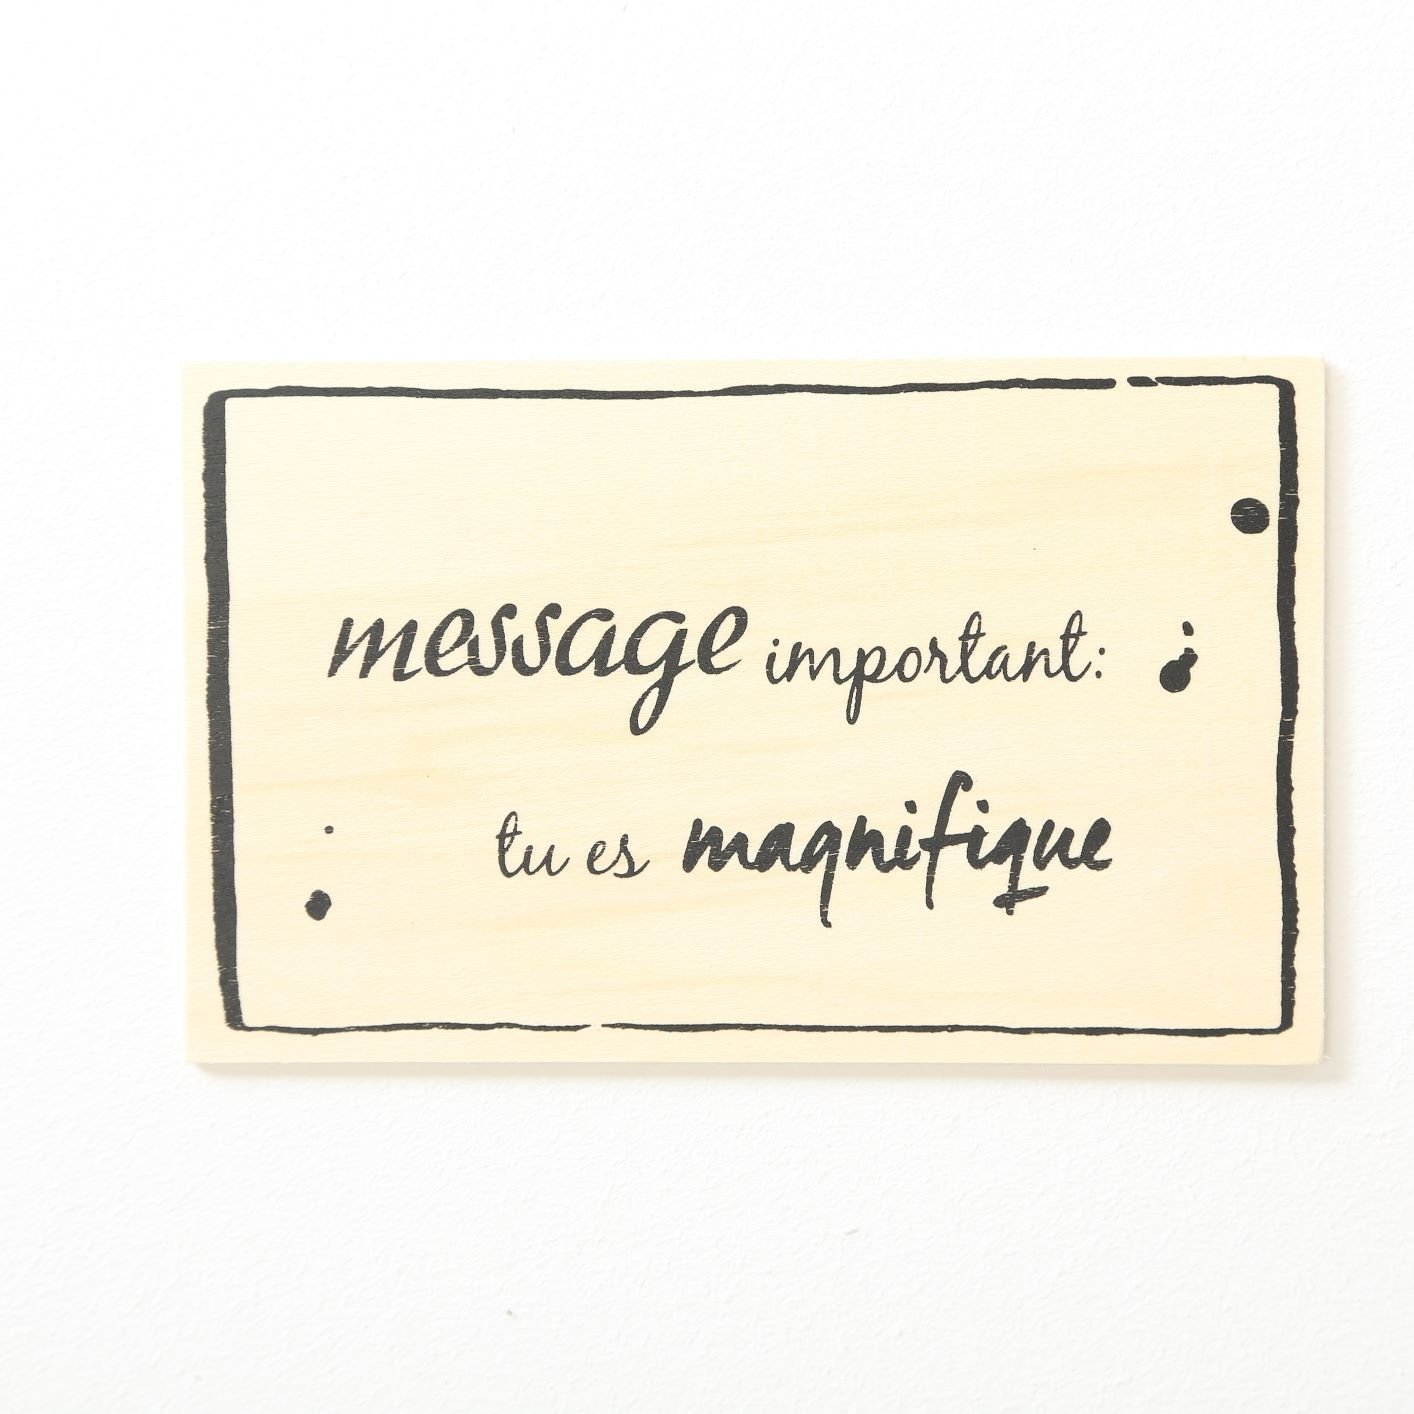 message important:
tu es magnifique